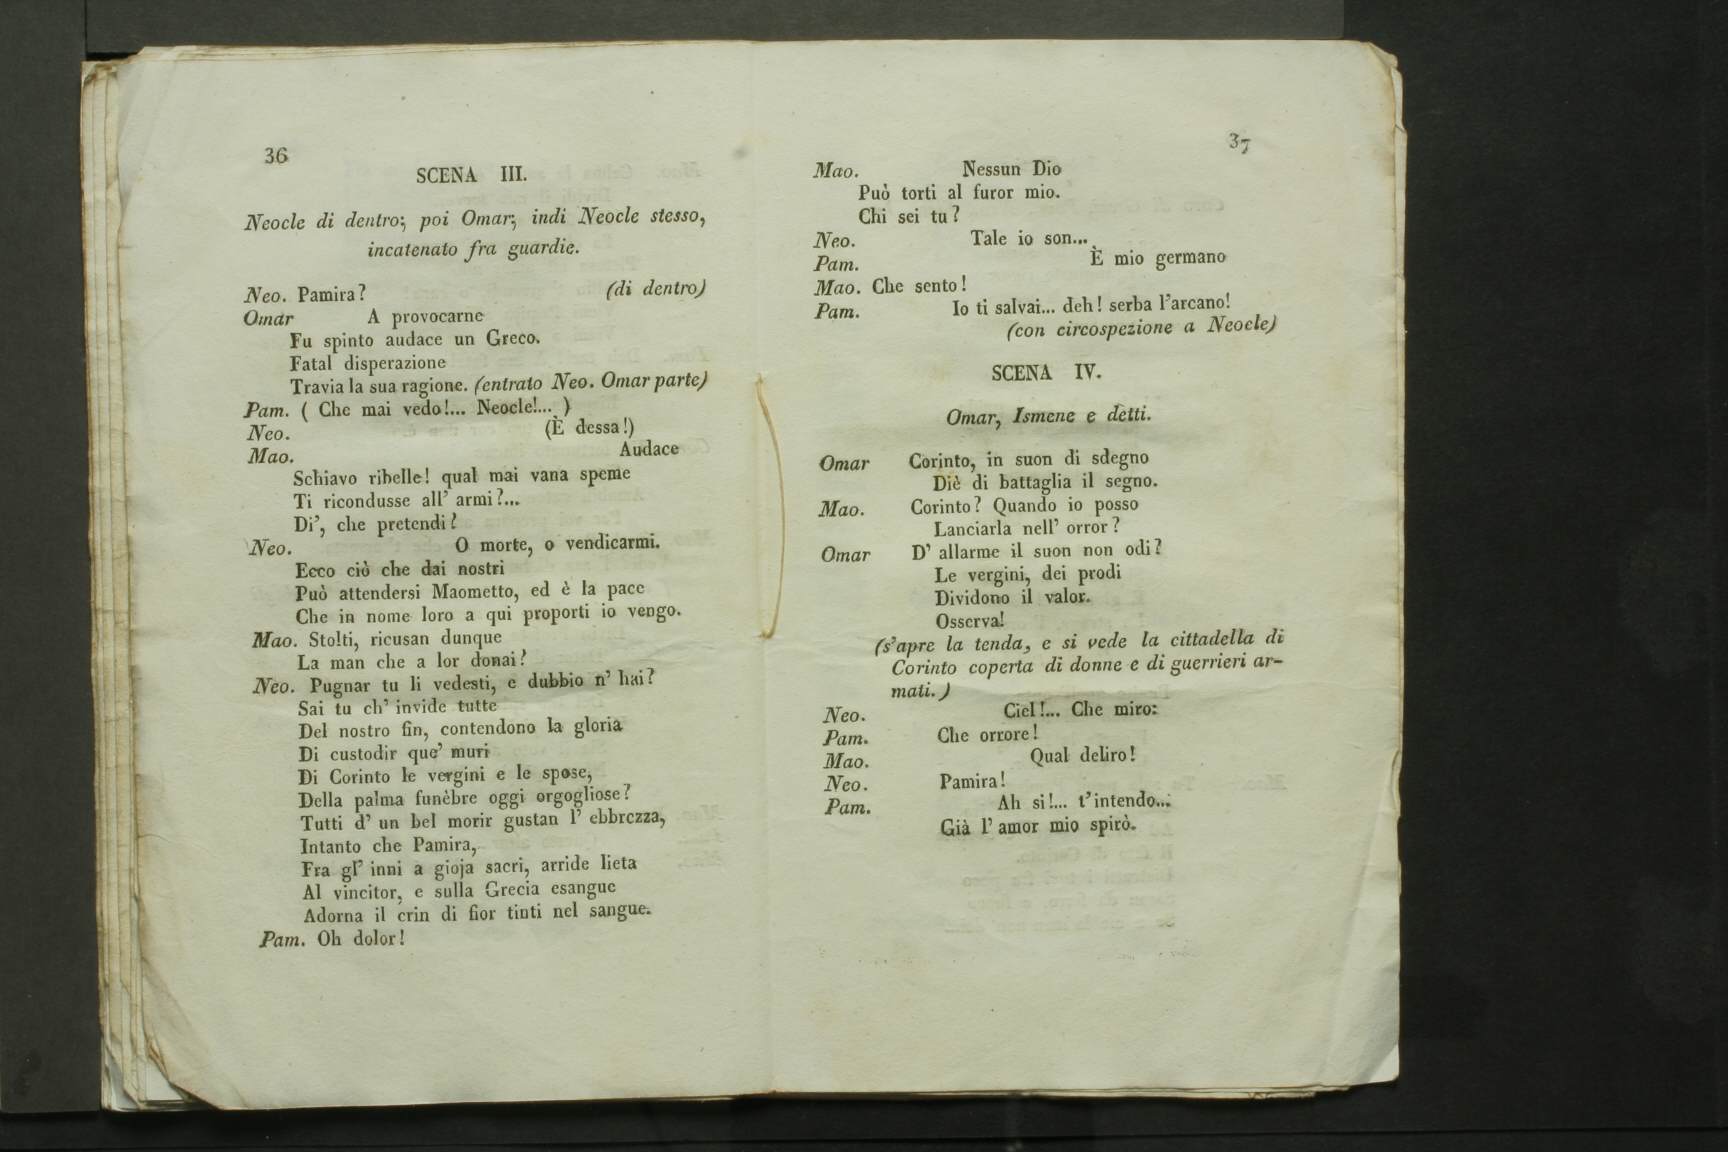 36
SCENA III.
Neocle di dentro; poi Omar; indi Neocle stesso,
incatenato fra guardie.
Neo. Pamira? (di dentro)
Omar A provocarne
Fu spinto audace un Greco.
Fatal disperazione
Travia la sua ragione. (entrato Neo. Omar parte)
Pam. ( Che mai vedo!... Neocle!... )
Neo. (È dessa!)
Mao. Audace
Schiavo ribelle! qual mai vana speme
Ti ricondusse all' armi?...
Di', che pretendi?
Neo. O morte, o vendicarmi.
Ecco ciò che dai nostri
Può attendersi Maometto, ed è la pace
Che in nome loro a qui proporti io vengo.
Mao. Stolti, ricusan dunque
La man che a lor donai?
Neo. Pugnar tu li vedesti, e dubbio n' hai?
Sai tu ch' invide tutte
Del nostro fin, contendono la gloria
Di custodir que' muri
Di Corinto le vergini e le spose,
Della palma funèbre oggi orgogliose?
Tutti d' un bel morir gustan l' ebbrezza,
Intanto che Pamira,
Fra gl' inni a gioja sacri, arride lieta
Al vincitor, e sulla Grecia esangue
Adorna il crin di fior tinti nel sangue.
Pam. Oh dolor!
37
Mao. Nessun Dio
Può torti al furor mio.
Chi sei tu?
Neo. Tale io son...
Pam. È mio germano
Mao. Che sento!
Pam. Io ti salvai... deh! serba l'arcano!
(con circospezione a Neocle)
SCENA IV.
Omar, Ismene e detti.
Omar Corinto, in suon di sdegno
Diè di battaglia il segno.
Mao. Corinto? Quando io posso
Lanciarla nell' orror?
Omar D' allarme il suon non odi?
Le vergini, dei prodi
Dividono il valor.
Osserva!
(s'apre la tenda, e si vede la cittadella di
Corinto coperta di donne e di guerrieri ar-
mati.)
Neo. Ciel!... Che miro:
Pam. Che orrore!
Mao. Qual deliro!
Neo. Pamira!
Pam. Ah si!... t'intendo...
Già l' amor mio spirò.